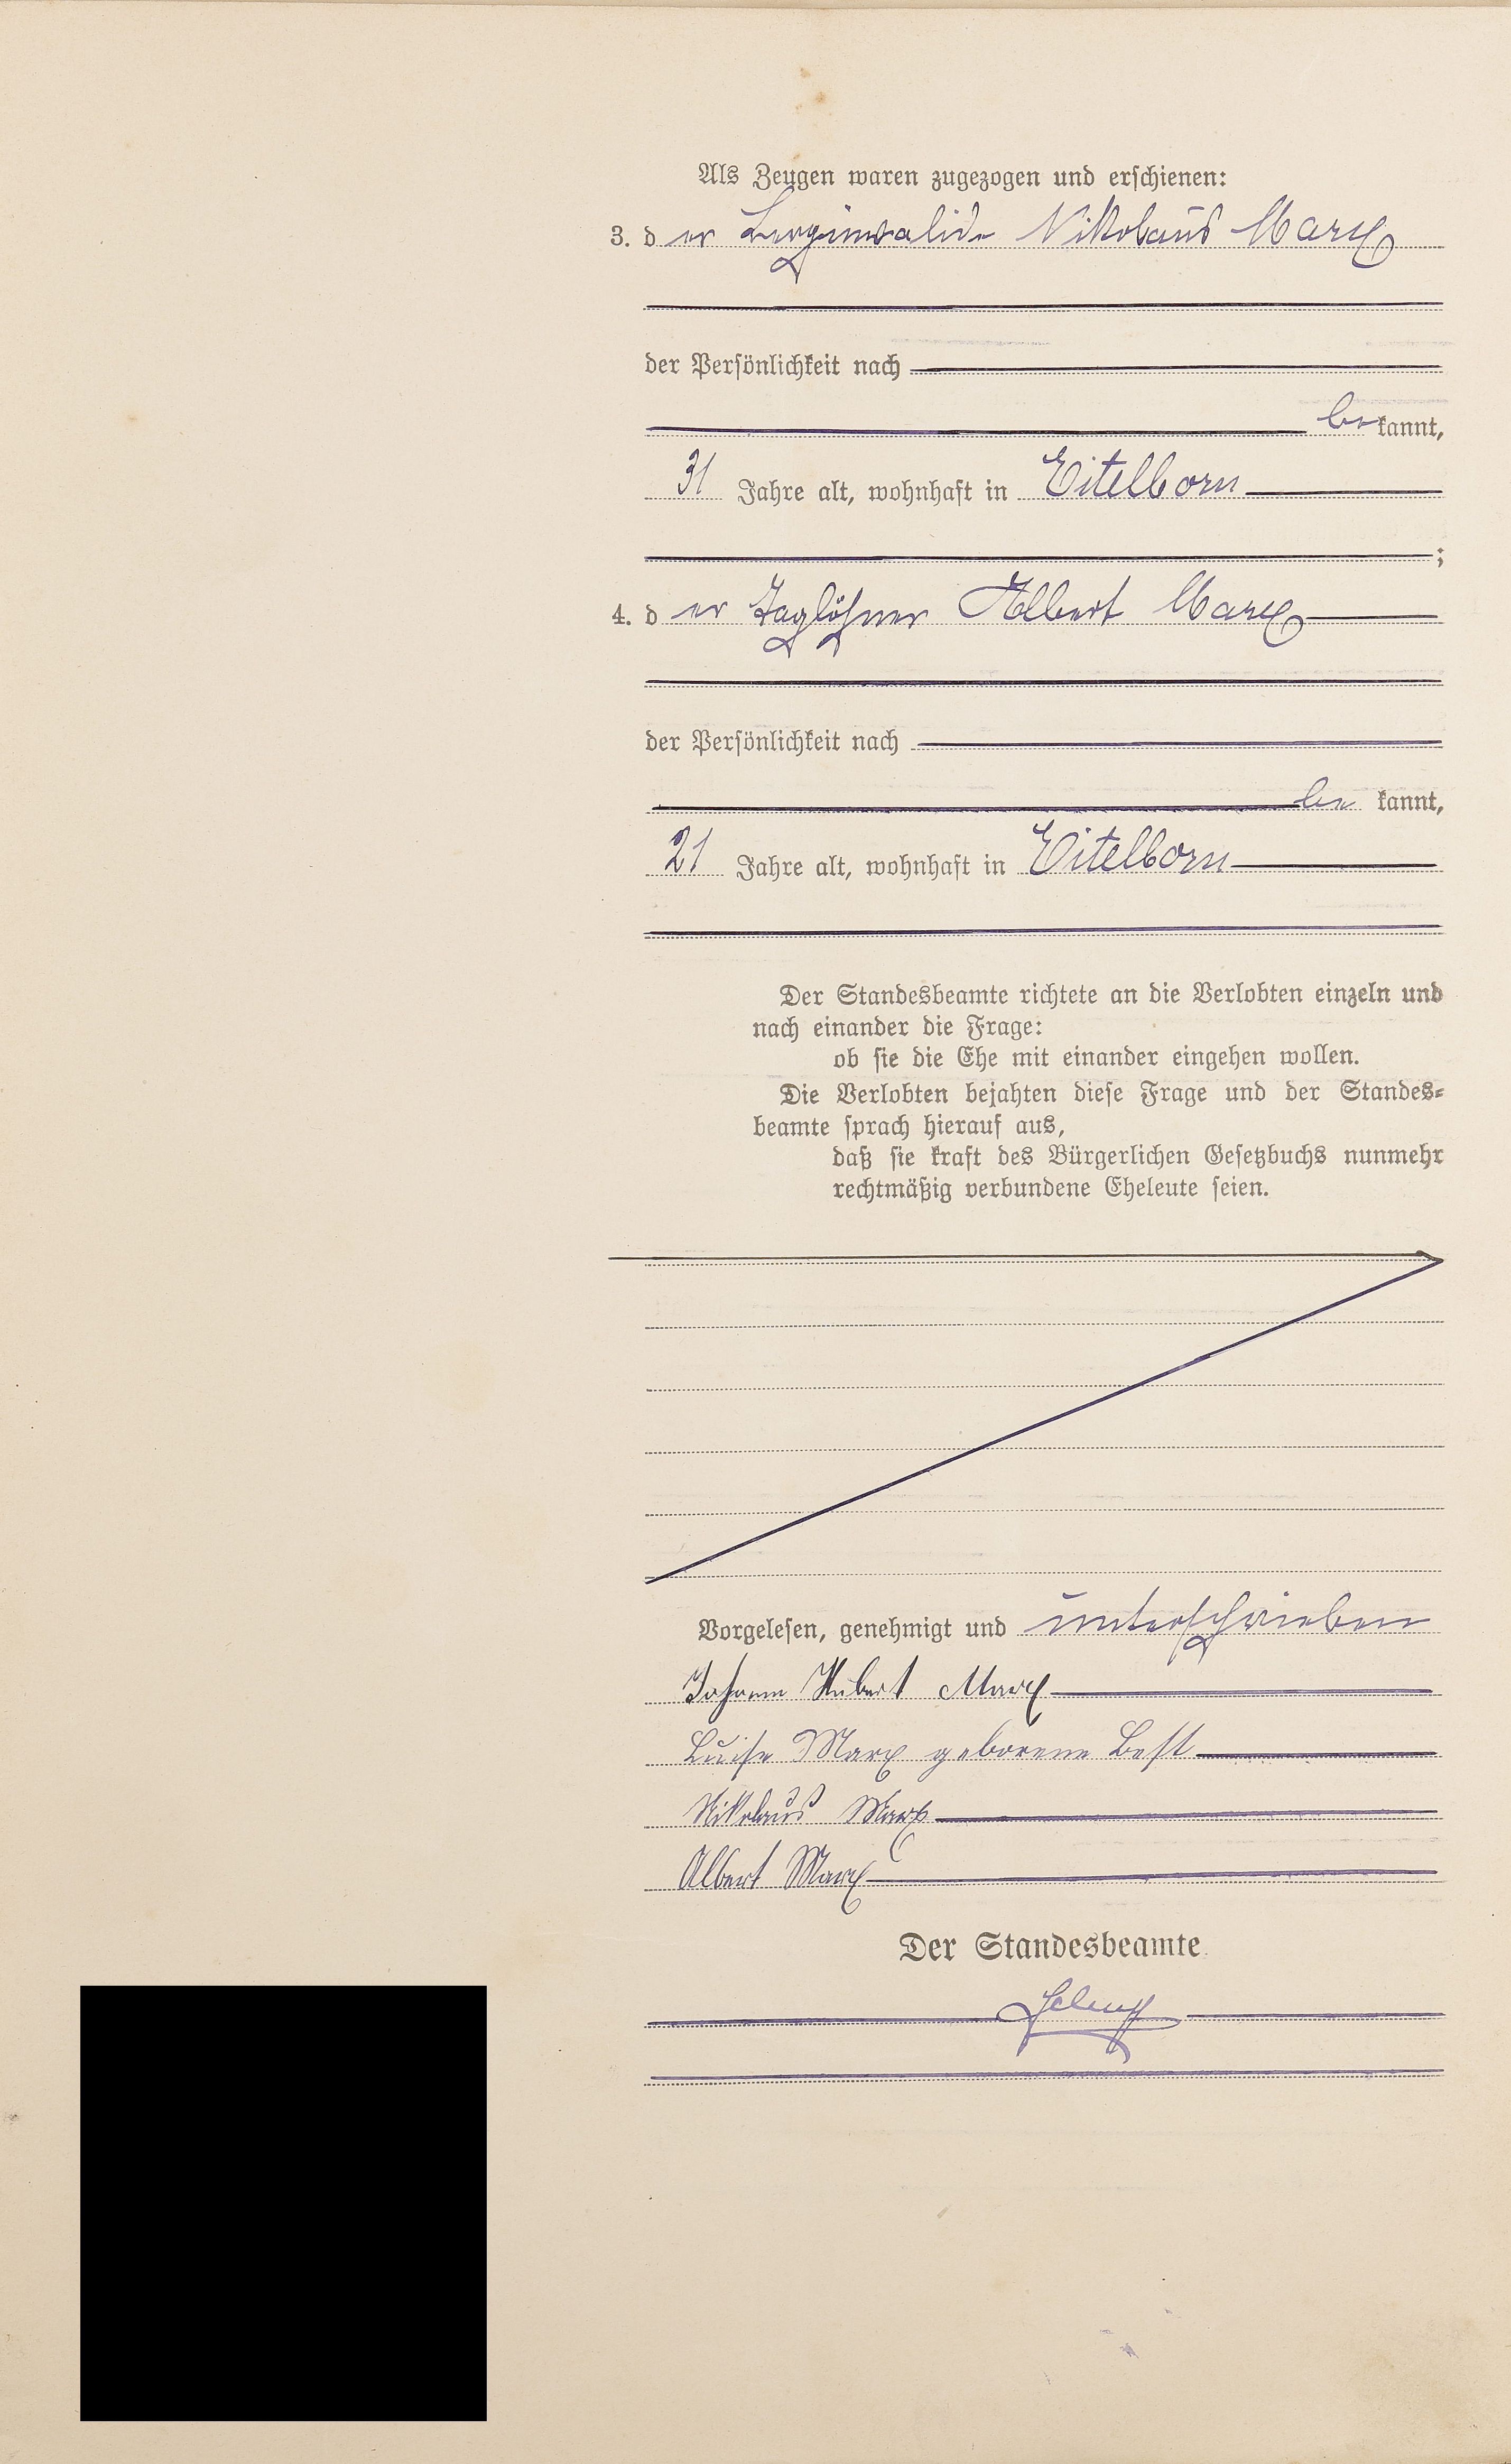 Als Zeugen waren zugezogen und erschienen:
3. der Berginvalide Nikolaus Marx
der Persönlichkeit nach
bekannt,
31 Jahre alt, wohnhaft in Eitelborn
;
4. der Taglöhner Albert Marx
der Persönlichkeit nach
bekannt,
21 Jahre alt, wohnhaft in Eitelborn
Der Standesbeamte richtete an die Verlobten einzeln und
nach einander die Frage:
ob sie die Ehe mit einander eingehen wollen.
Die Verlobten bejahten diese Frage und der Standes-
beamte sprach hierauf aus,
daß sie kraft des Bürgerlichen Gesetzbuchs nunmehr
rechtmäßig verbundene Eheleute seien.
Vorgelesen, genehmigt und unterschrieben
Johann Hubert Marx
Luise Marx geborene Best
Nikolaus Marx
Albert Marx
Der Standesbeamte